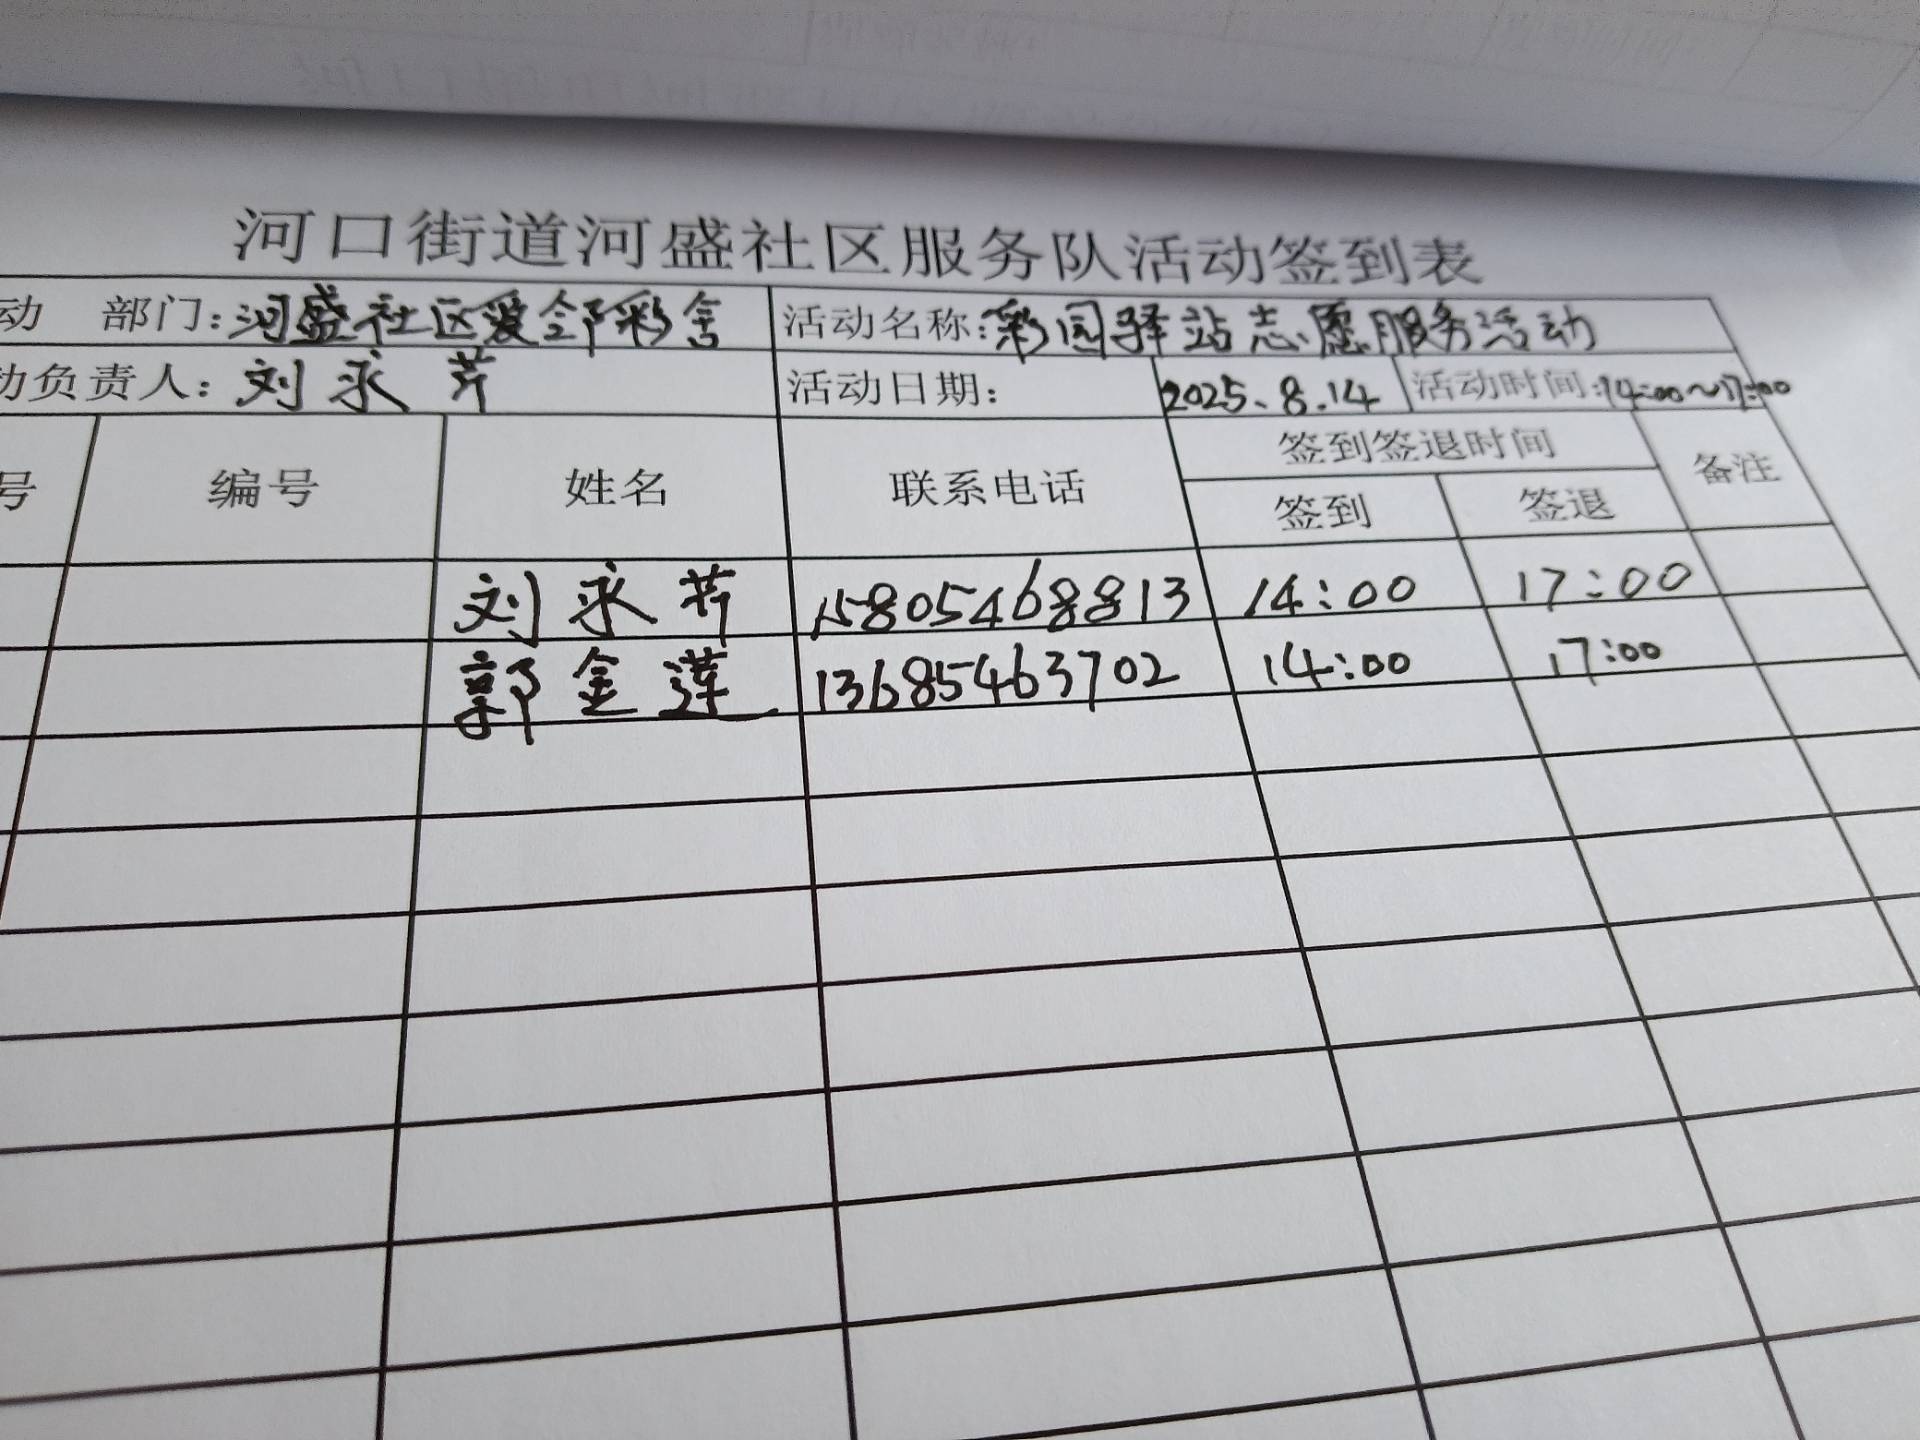 河口街道河盛社区服务队活动签到表
动 部门：河盛社区爱邻彩舍 活动名称：彩园驿站志愿服务活动
动负责人：刘永芹 活动日期： 2025.8.14 活动时间：14:00～17:00
号 编号 姓名 联系电话 签到签退时间 备注
签到 签退
刘永芹 15805468813 14:00 17:00
郭金莲 13685463702 14:00 17:00